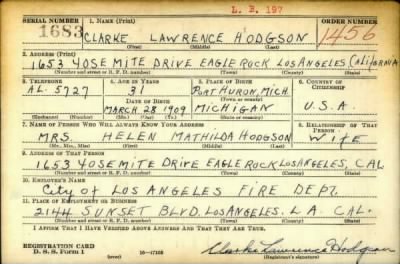 L. B. 197
SERIAL NUMBER 1. NAME (Print) ORDER NUMBER
1683 CLARKE LAWRENCE HODGSON 1456
(First) (Middle) (Last)
2. ADDRESS (Print)
1653 YOSEMITE DRIVE EAGLE ROCK LOS ANGELES, CALIFORNIA
(Number and street or R. F. D. number) (Town) (County) (State)
3. TELEPHONE 4. AGE IN YEARS 5. PLACE OF BIRTH 6. COUNTRY OF CITIZENSHIP
AL. 5727 31 PORT HURON, MICH.
DATE OF BIRTH (Town or county)
MARCH 28 1909 MICHIGAN U.S.A.
(Mo.) (Day) (Yr.) (State or country)
7. NAME OF PERSON WHO WILL ALWAYS KNOW YOUR ADDRESS 8. RELATIONSHIP OF THAT PERSON
MRS. HELEN MATHILDA HODGSON WIFE
(Mr., Mrs., Miss) (First) (Middle) (Last)
9. ADDRESS OF THAT PERSON
1653 YOSEMITE DRIVE EAGLE ROCK LOS ANGELES, CAL
(Number and street or R. F. D. number) (Town) (County) (State)
10. EMPLOYER'S NAME
City of LOS ANGELES FIRE DEPT.
11. PLACE OF EMPLOYMENT OR BUSINESS
2144 SUNSET BLVD. LOS ANGELES. L.A. CAL.
(Number and street or R. F. D. number) (Town) (County) (State)
I AFFIRM THAT I HAVE VERIFIED ABOVE ANSWERS AND THAT THEY ARE TRUE.
REGISTRATION CARD
D. S. S. Form 1 (over) 16—17105 Clarke Lawrence Hodgson
(Registrant's signature)